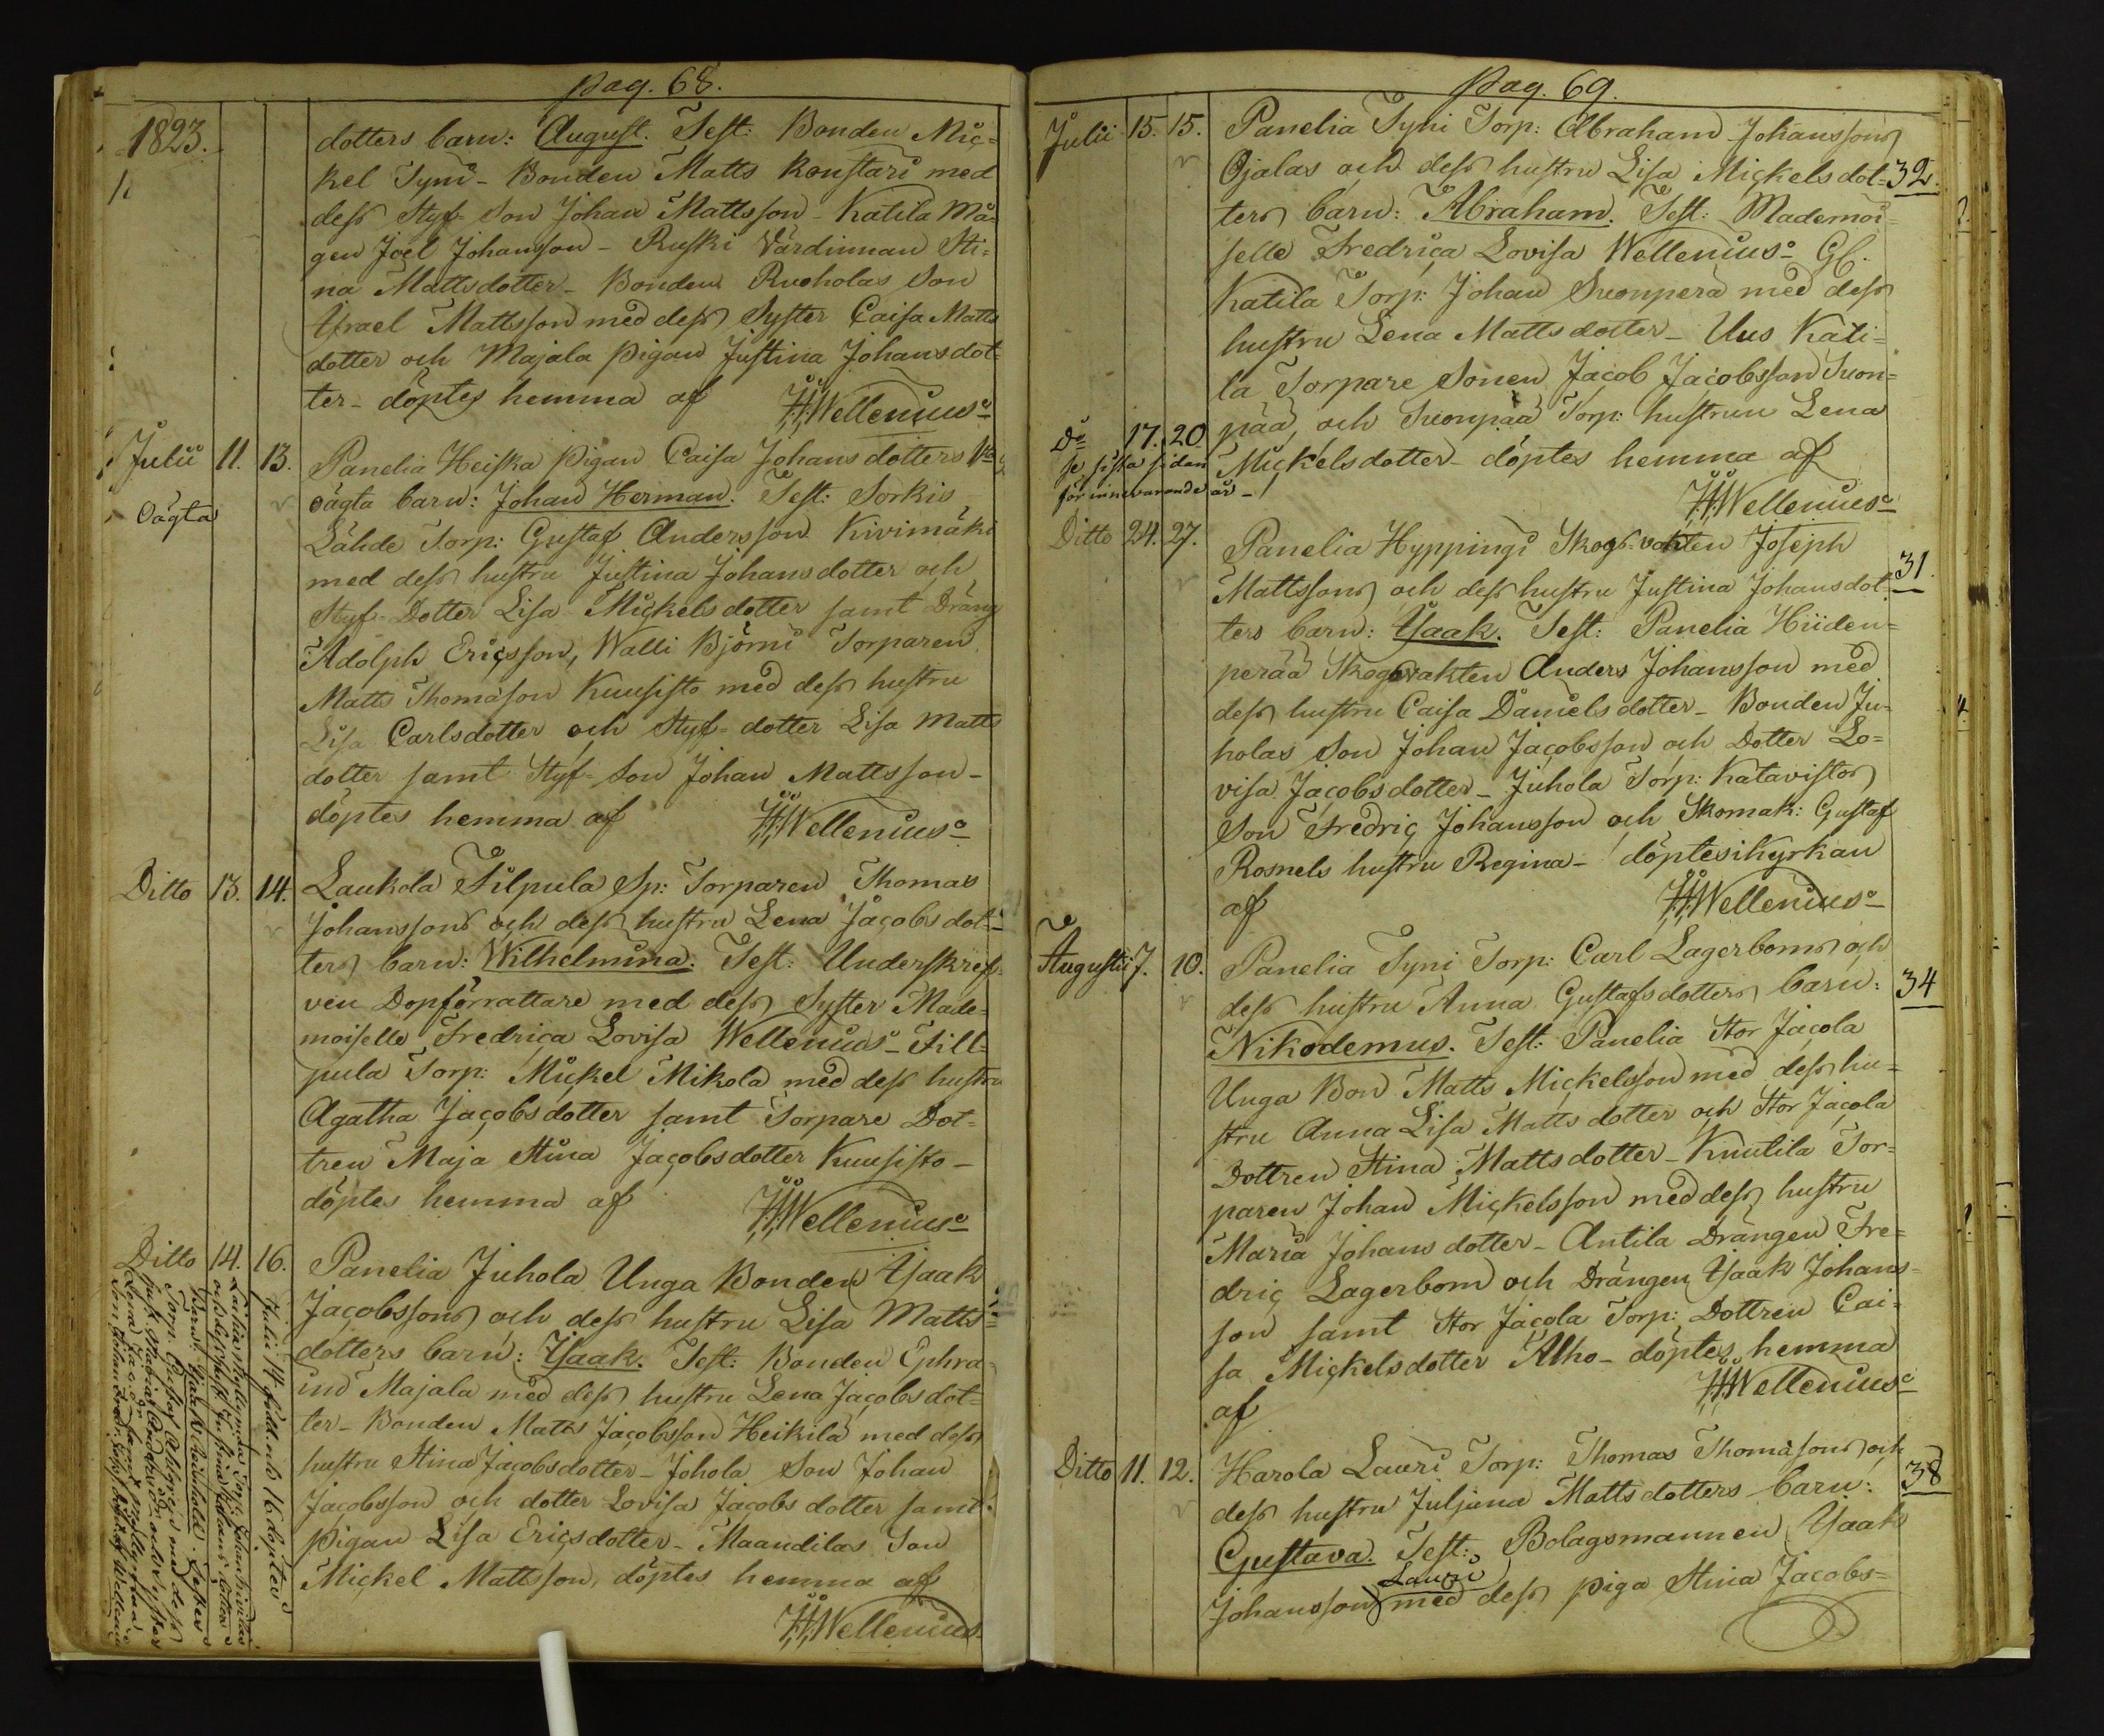 pag. 68.
1823.
dotters barn: August. Test: Bonden Mic=
kel Tyni - Bonden Matts Konstari med
dess Styf-Son Johan Mattsson - Katila Må-
gen Joel Johansson - Ruski Värdinnan Sti=
na Mattsdotter - Bonden Ruoholas Son
Israel Mattsson med dess Syster Caisa Matts
dotter och Majala pigan Justina Johansdot-
ter - döptes hemma af HHWellenius
Julii 11. 13.
Oägta
Panelia Heiska pigan Caisa Johansdotters
oägta barn: Johan Herman. Test: Sorkis
Lähde Torp: Gustaf Andersson Kivimäki
med dess hustru Justina Johansdotter och
Styf-Dotter Lisa Mickelsdotter samt Dräng
Adolph Ericsson, Walli Björni Torparen
Matts Thomasson Kuusisto med dess hustru
Lisa Carlsdotter och Styf-dotter Lisa Matts
dotter samt Styf-Son Johan Mattsson -
döptes hemma af HHWellenius
Ditto 13. 14.
Laukola Filpula Sp: Torparen Thomas
Johanssons och dess hustru Lena Jacobsdot=
ters barn: Wilhelmina. Test: Underskref-
ven Dopförrattare med dess Syster Made-
moiselle Fredrica Lovisa Wellenius - Fill=
pula Torp: Mickel Mikola med dess hustru
Agatha Jacobsdotter samt Torpare Dot=
tren Maja Stina Jacobsdotter Kuusisto -
döptes hemma af HHWellenius
Ditto 14. 16.
Panelia Juhola Unga Bonden Isaak
Jacobssons och dess hustru Lisa Matts=
dotters barn: Isaak. Test: Bonden Ephra-
im Majala med dess hustru Lena Jacobsdot=
ter - Bonden Matts Jacobsson Heikilä med dess
hustru Stina Jacobsdotter - Johola Son Johan
Jacobsson och dotter Lovisa Jacobs dotter samt
Pigan Lisa Ericsdotter - Maandilas Son
Mickel Mattsson, döptes hemma af
HHWellenius
Julii 14 född och 16 döptes
pag. 69.
Julii 15. 15.
Panelia Tyni Torp: Abraham Johanssons
Ojalas och dess hustru Lisa Mickelsdot= 32.
ters barn: Abraham. Test: Mademoi=
selle Fredrica Lovisa Wellenius - Gl.
Katila Torp: Johan Suonperä med dess
hustru Lena Mattsdotter - Uus Kati=
la Torpare Sonen Jacob Jacobsson Suon=
pää, och Suonpää Torp: hustrun Lena
Mickelsdotter - döptes hemma af
HHWellenius
Do 17. 20
se sista sidan
för innevarande år -/
Ditto 24. 27.
Panelia Hyppingi Skogs-vakten Joseph
Mattssons och dess hustru Justina Johansdot- 31.
ters barn: Isaak. Test: Panelia Hiiden=
perää Skogsvakten Anders Johansson med
dess hustru Caisa Danielsdotter - Bonden Ju-
holas Son Johan Jacobsson och Dotter Lo=
visa Jacobsdotter - Juhola Torp: Katavistos
Son Fredric Johansson och Skomak: Gustaf
Rosnels hustru Regina - döptes i Kyrkan
af HHWellenius
Augusti 7. 10.
Panelia Tyni Torp: Carl Lagerboms och
dess hustru Anna Gustafsdotters barn: 34
Nikodemus. Test: Panelia Stor Jacola
Unga Bon Matts Mickelsson med dess hu=
stru Anna Lisa Matts dotter och Stor Jacola
Dottren Stina Mattsdotter - Knutila Tor=
paren Johan Mickelsson med dess hustru
Maria Johans dotter - Antila Drängen Fre=
dric Lagerbom och Drängen Isaak Johans=
son samt Stor Jacola Torp: Dottren Cai=
sa Mickelsdotter Alho - döptes hemma
af HHWellenius
Ditto 11. 12.
Harola Lauri Torp: Thomas Thomasons och
dess hustru Juljana Mattsdotters barn: 38
Gustava. Test: Bolagsmannen Isaak
Johansson Lauri med dess piga Stina Jacobs=